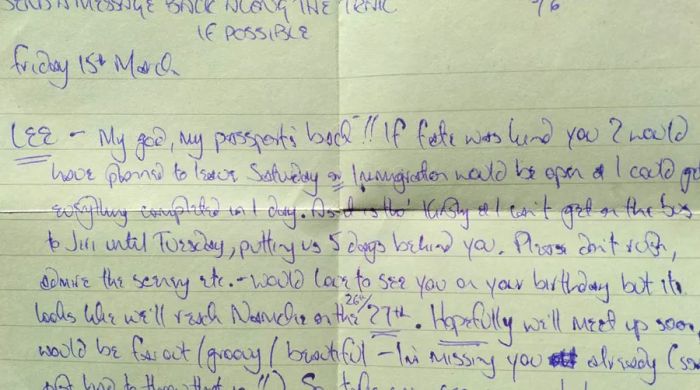 SEND A MESSAGE BACK ALONG THE TRAIL
IF POSSIBLE
Friday 15th March
LEE - My god, my passport's back!! If fate was kind you & would
have planned to leave Saturday as Immigration would be open & I could get
everything completed in 1 day. As it is tho' I can't get on the bus
to Jiri until Tuesday, putting us 5 days behind you. Please don't rush,
admire the scenery etc. - would love to see you on your birthday but it
looks like we'll reach Namche on the 26th/27th. Hopefully we'll meet up soon,
would be far out / groovy / beautiful - I'm missing you already (so